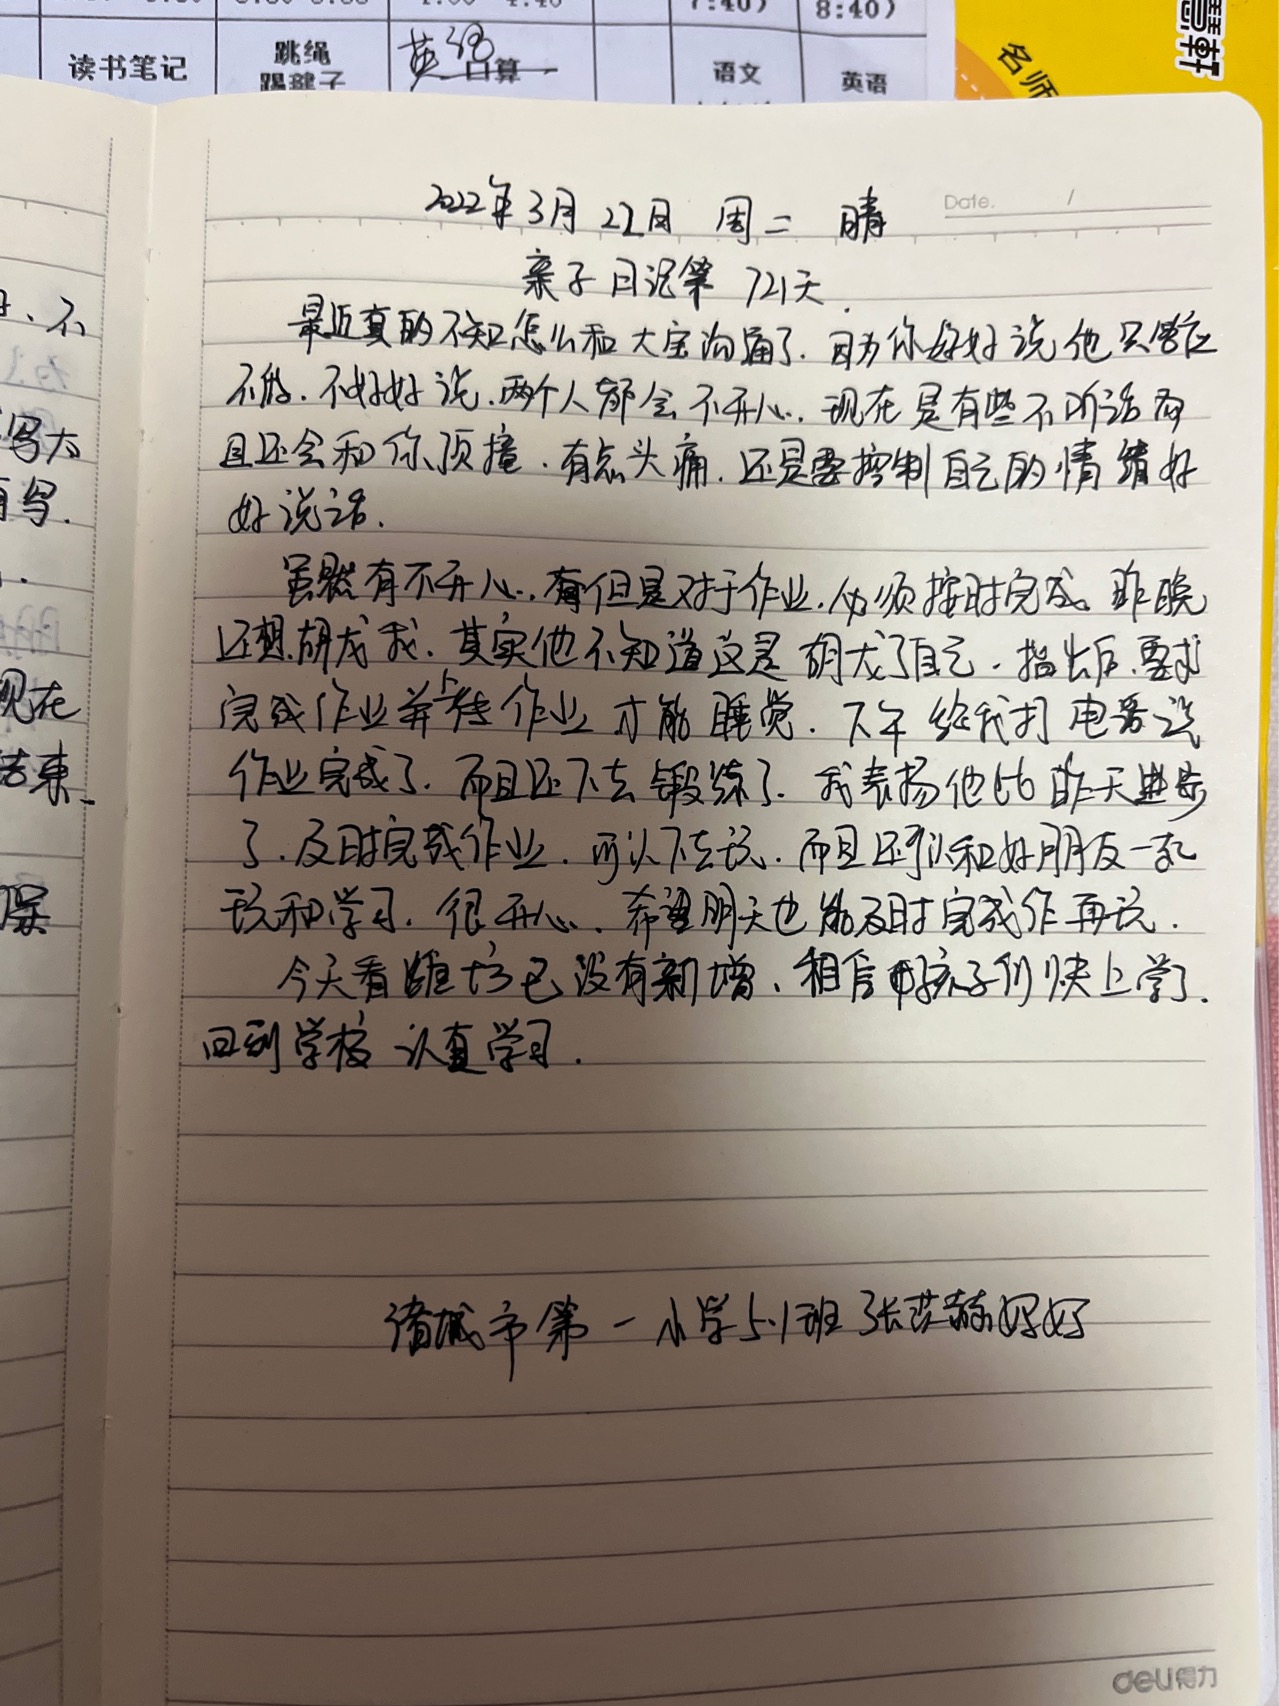 7:40)
8:40)
读书笔记
跳绳
踢毽子
英语
口算
语文
英语
名师
Date. /
2022年3月22日 周二 晴
亲子日记第721天.
最近真的不知怎么和大宝沟通了.因为你好好说他只答应
不做.不好好说.两个人都会不开心.现在是有些不听话而
且还会和你顶撞.有点头痛.还是要控制自己的情绪好
好说话.
虽然有不开心.但是对于作业.必须按时完成.昨晚
还想胡龙我.其实他不知道这是胡龙了自己.指出后.要求
完成作业并上传作业才能睡觉.下午给我打电话说
作业完成了.而且还下去锻练了.我表扬他比昨天进步
了.及时完成作业.可以下去玩.而且还可以和好朋友一起
玩和学习.很开心.希望明天也能及时完成作再玩.
今天看潍坊已没有新增、相信孩子们快上学了.
回到学校认真学习.
诸城市第一小学5.1班张
不
写大
写.
现在
结束
deli得力